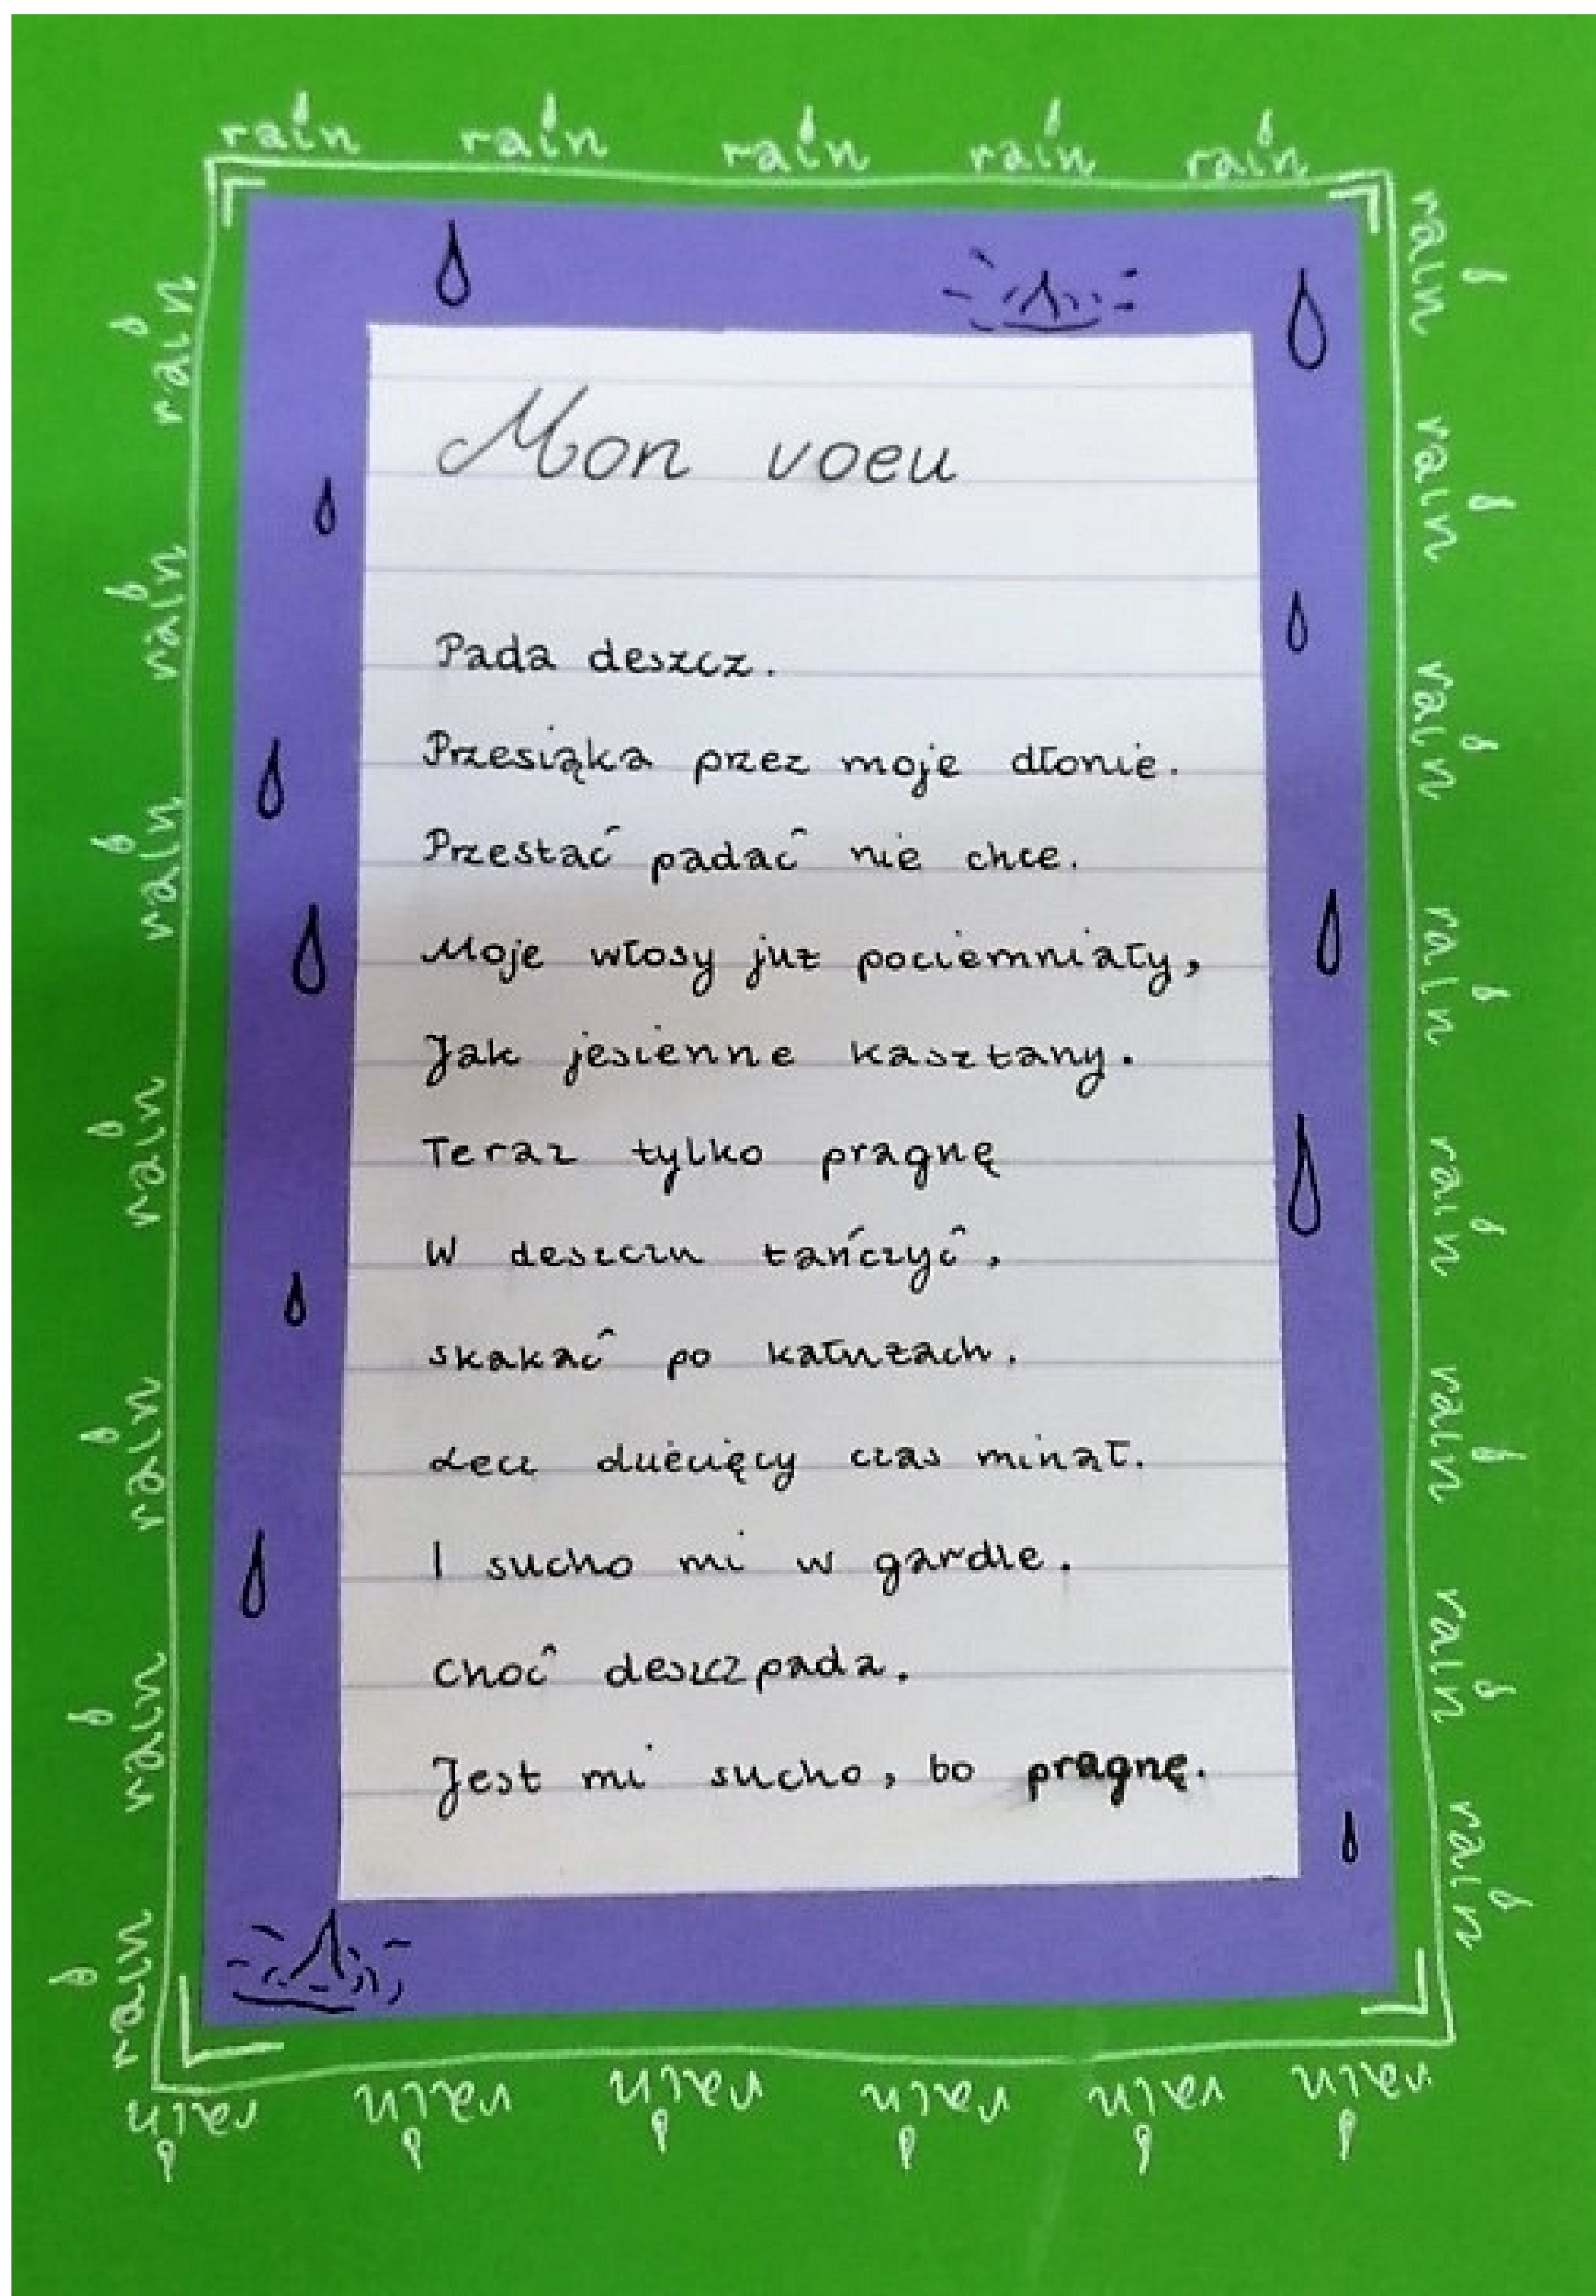 rain rain rain rain rain
Mon voeu
Pada deszcz.
Przesiąka przez moje dłonie.
Przestać padać nie chce.
Moje włosy już pociemniały,
Jak jesienne kasztany.
Teraz tylko pragnę
W deszczu tańczyć,
skakać po kałużach.
Lecz dziecięcy czas minął.
I sucho mi w gardle.
Choć deszcz pada.
Jest mi sucho, bo pragnę.
rain rain rain rain rain rain rain rain
rain rain rain rain rain rain
rain rain rain rain rain rain rain